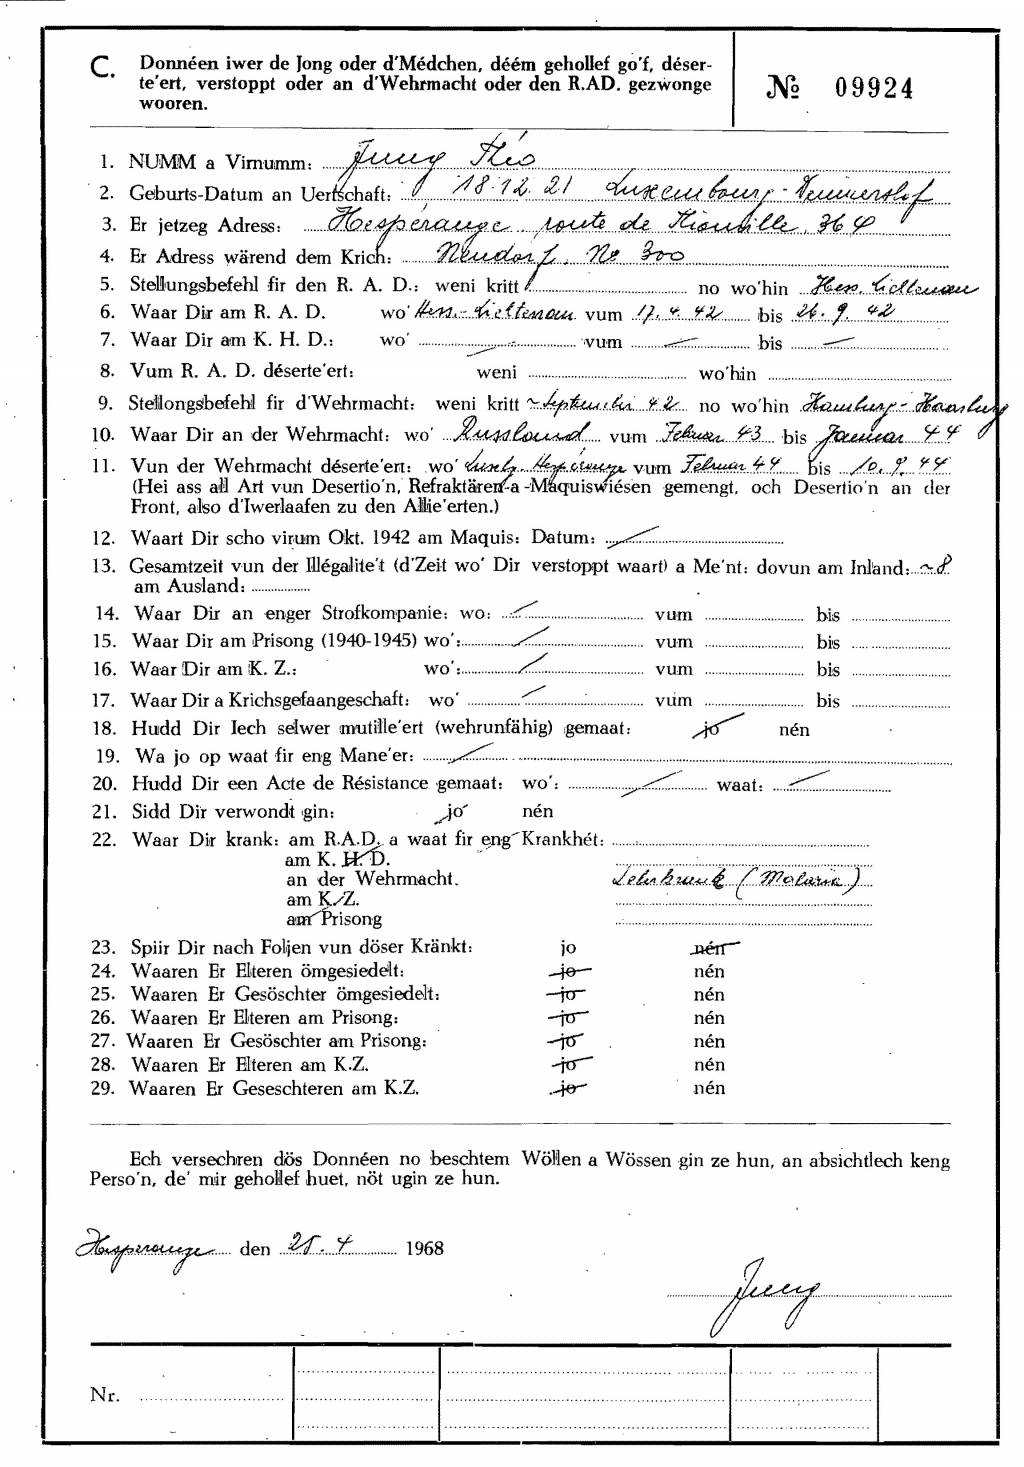 C. Donnéen iwer de Jong oder d'Médchen, déém gehollef go'f, déser-
te'ert, verstoppt oder an d'Wehrmacht oder den R.AD. gezwonge
wooren.
№ 09924
1. NUMM a Virnumm: Jung Théo
2. Geburts-Datum an Uertschaft: 18.12.21 Luxembourg-Dummershof
3. Er jetzeg Adress: Hespérange route de Thionville, 364
4. Er Adress wärend dem Krich: Neudorf, No 300
5. Stellungsbefehl fir den R. A. D.: weni kritt no wo'hin Hess. Lichtenau
6. Waar Dir am R. A. D. wo' Hess.-Lichtenau vum 17.4.42 bis 26.9.42
7. Waar Dir am K. H. D.: wo' — vum — bis —
8. Vum R. A. D. déserte'ert: weni wo'hin
9. Stellongsbefehl fir d'Wehrmacht: weni kritt ~September 42 no wo'hin Hamburg-Haarburg
10. Waar Dir an der Wehrmacht: wo' Russland vum Februar 43 bis Januar 44
11. Vun der Wehrmacht déserte'ert: wo' Hespérange vum Februar 44 bis 10.9.44
(Hei ass all Art vun Desertio'n, Refraktären-a -Maquiswiésen gemengt, och Desertio'n an der
Front, also d'Iwerlaafen zu den Allie'erten.)
12. Waart Dir scho virum Okt. 1942 am Maquis: Datum:
13. Gesamtzeit vun der Illégalite't (d'Zeit wo' Dir verstoppt waart) a Me'nt: dovun am Inland: ~8
am Ausland:
14. Waar Dir an enger Strofkompanie: wo: vum bis
15. Waar Dir am Prisong (1940-1945) wo': vum bis
16. Waar Dir am K. Z.: wo': vum bis
17. Waar Dir a Krichsgefaangeschaft: wo' vum bis
18. Hudd Dir Iech selwer mutille'ert (wehrunfähig) gemaat: jo nén
19. Wa jo op waat fir eng Mane'er:
20. Hudd Dir een Acte de Résistance gemaat: wo': waat:
21. Sidd Dir verwondt gin: jo nén
22. Waar Dir krank: am R.A.D. a waat fir eng Krankhét:
am K. H. D.
an der Wehrmacht. (Malaria)
am K. Z.
am Prisong
23. Spiir Dir nach Foljen vun döser Kränkt: jo nén
24. Waaren Er Elteren ömgesiedelt: jo nén
25. Waaren Er Gesöschter ömgesiedelt: jo nén
26. Waaren Er Elteren am Prisong: jo nén
27. Waaren Er Gesöschter am Prisong: jo nén
28. Waaren Er Elteren am K.Z. jo nén
29. Waaren Er Geseschteren am K.Z. jo nén
Ech versechren dös Donnéen no beschtem Wöllen a Wössen gin ze hun, an absichtlech keng
Perso'n, de' mir gehollef huet, nöt ugin ze hun.
Hesperange den 25.4 1968
Jung
Nr.